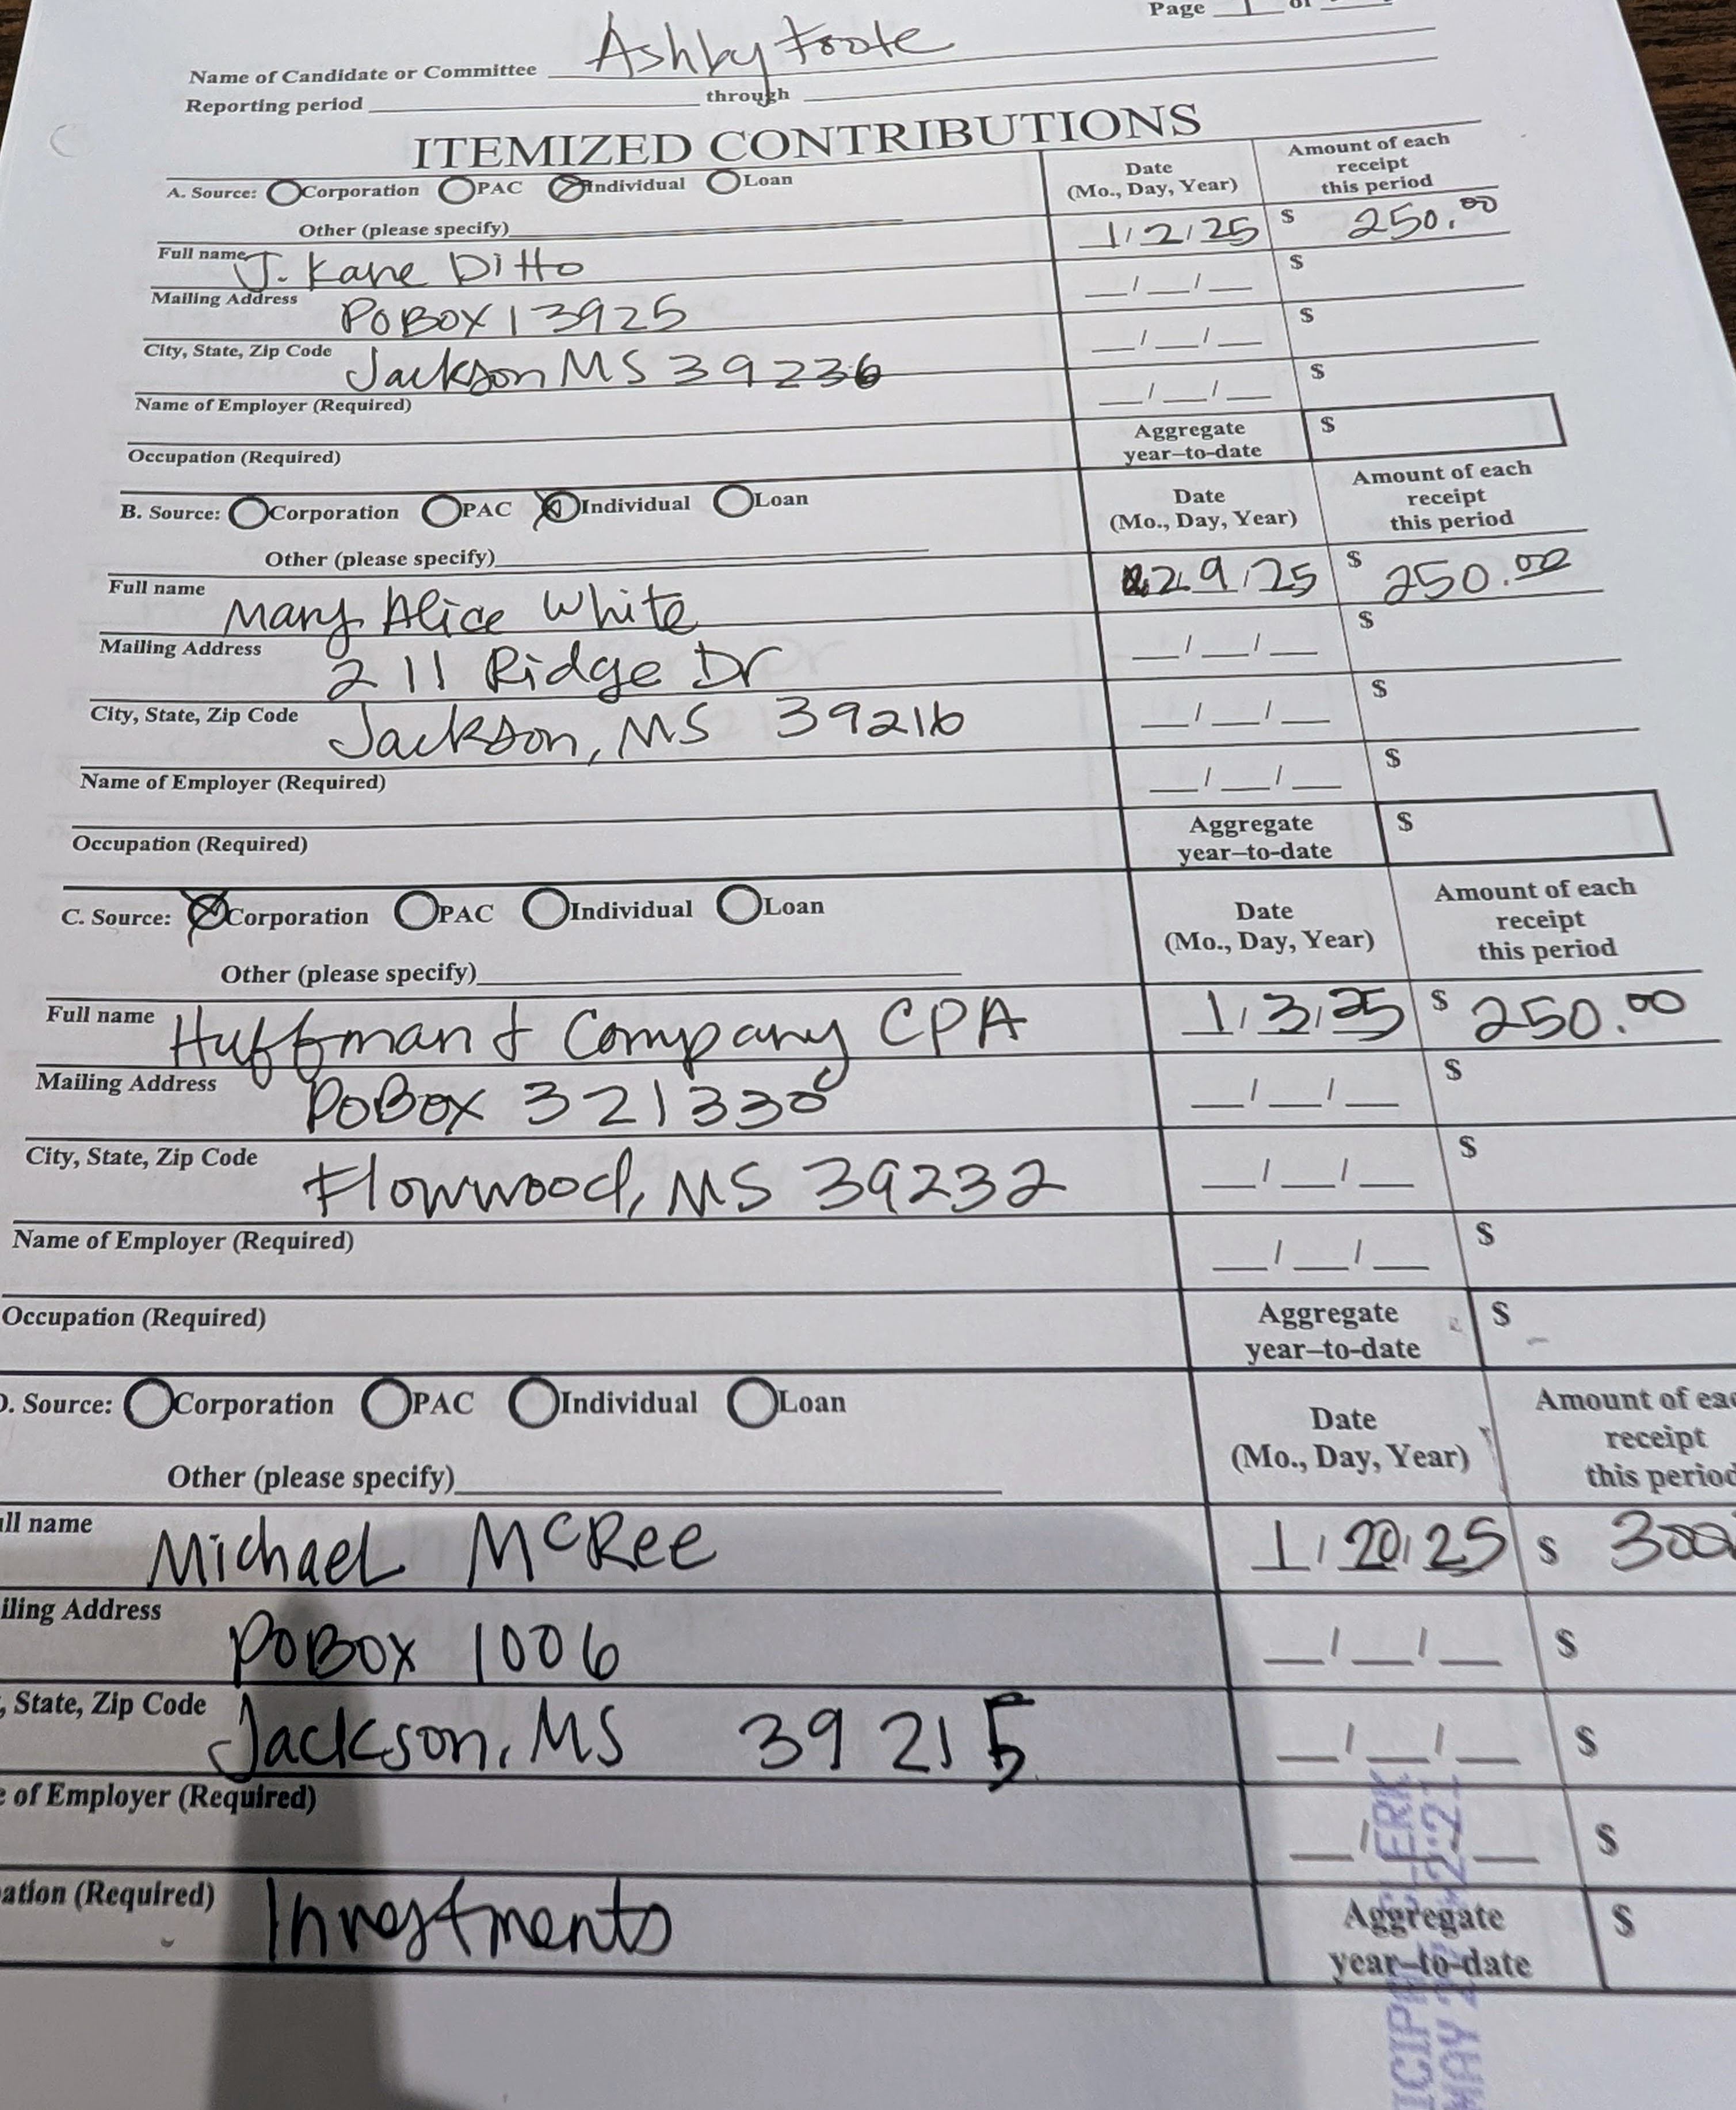 Page 1 of
Name of Candidate or Committee Ashby Foote
Reporting period through
ITEMIZED CONTRIBUTIONS
A. Source: Corporation PAC Individual Loan
Date (Mo., Day, Year)
Amount of each receipt this period
Other (please specify)
1/2/25 $ 250.00
Full name J. Kane Ditto
/ / $
Mailing Address PO BOX 13925
/ / $
City, State, Zip Code Jackson MS 39236
/ / $
Name of Employer (Required)
Aggregate year-to-date $
Occupation (Required)
B. Source: Corporation PAC Individual Loan
Date (Mo., Day, Year)
Amount of each receipt this period
Other (please specify)
2/9/25 $ 250.00
Full name Mary Alice White
/ / $
Mailing Address 211 Ridge Dr
/ / $
City, State, Zip Code Jackson, MS 39216
/ / $
Name of Employer (Required)
Aggregate year-to-date $
Occupation (Required)
C. Source: Corporation PAC Individual Loan
Date (Mo., Day, Year)
Amount of each receipt this period
Other (please specify)
Full name Huffman & Company CPA
1/3/25 $ 250.00
Mailing Address PO Box 321338
/ / $
City, State, Zip Code Flowwood, MS 39232
/ / $
Name of Employer (Required)
/ / $
Occupation (Required)
Aggregate year-to-date $
. Source: Corporation PAC Individual Loan
Date (Mo., Day, Year)
Amount of eac
receipt
this period
Other (please specify)
ull name Michael McRee
1/20/25 $ 300
iling Address PO BOX 1006
/ / $
, State, Zip Code Jackson, MS 39215
/ / $
e of Employer (Required)
/ / $
ation (Required) Investments
Aggregate year-to-date $
ICIP CLERK
MAY 2:21